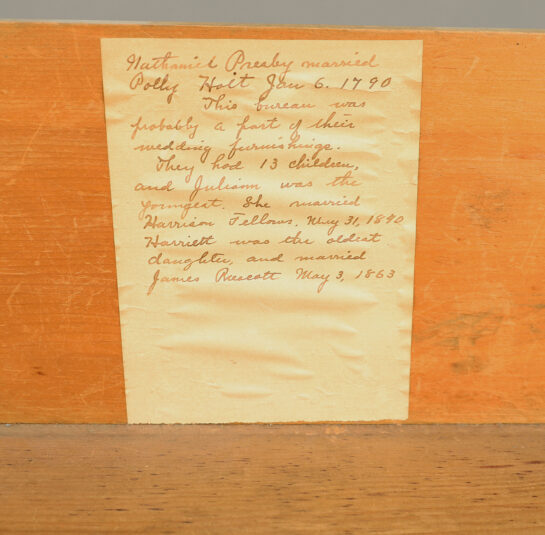 Nathaniel Presby married
Polly Holt Jan 6. 1790
This bureau was
probably a part of their
wedding furnishings.
They had 13 children,
and Juliann was the
youngest. She married
Harrison Fellows, May 31, 1840
Harriett was the oldest
daughter, and married
James Prescott May 3, 1863